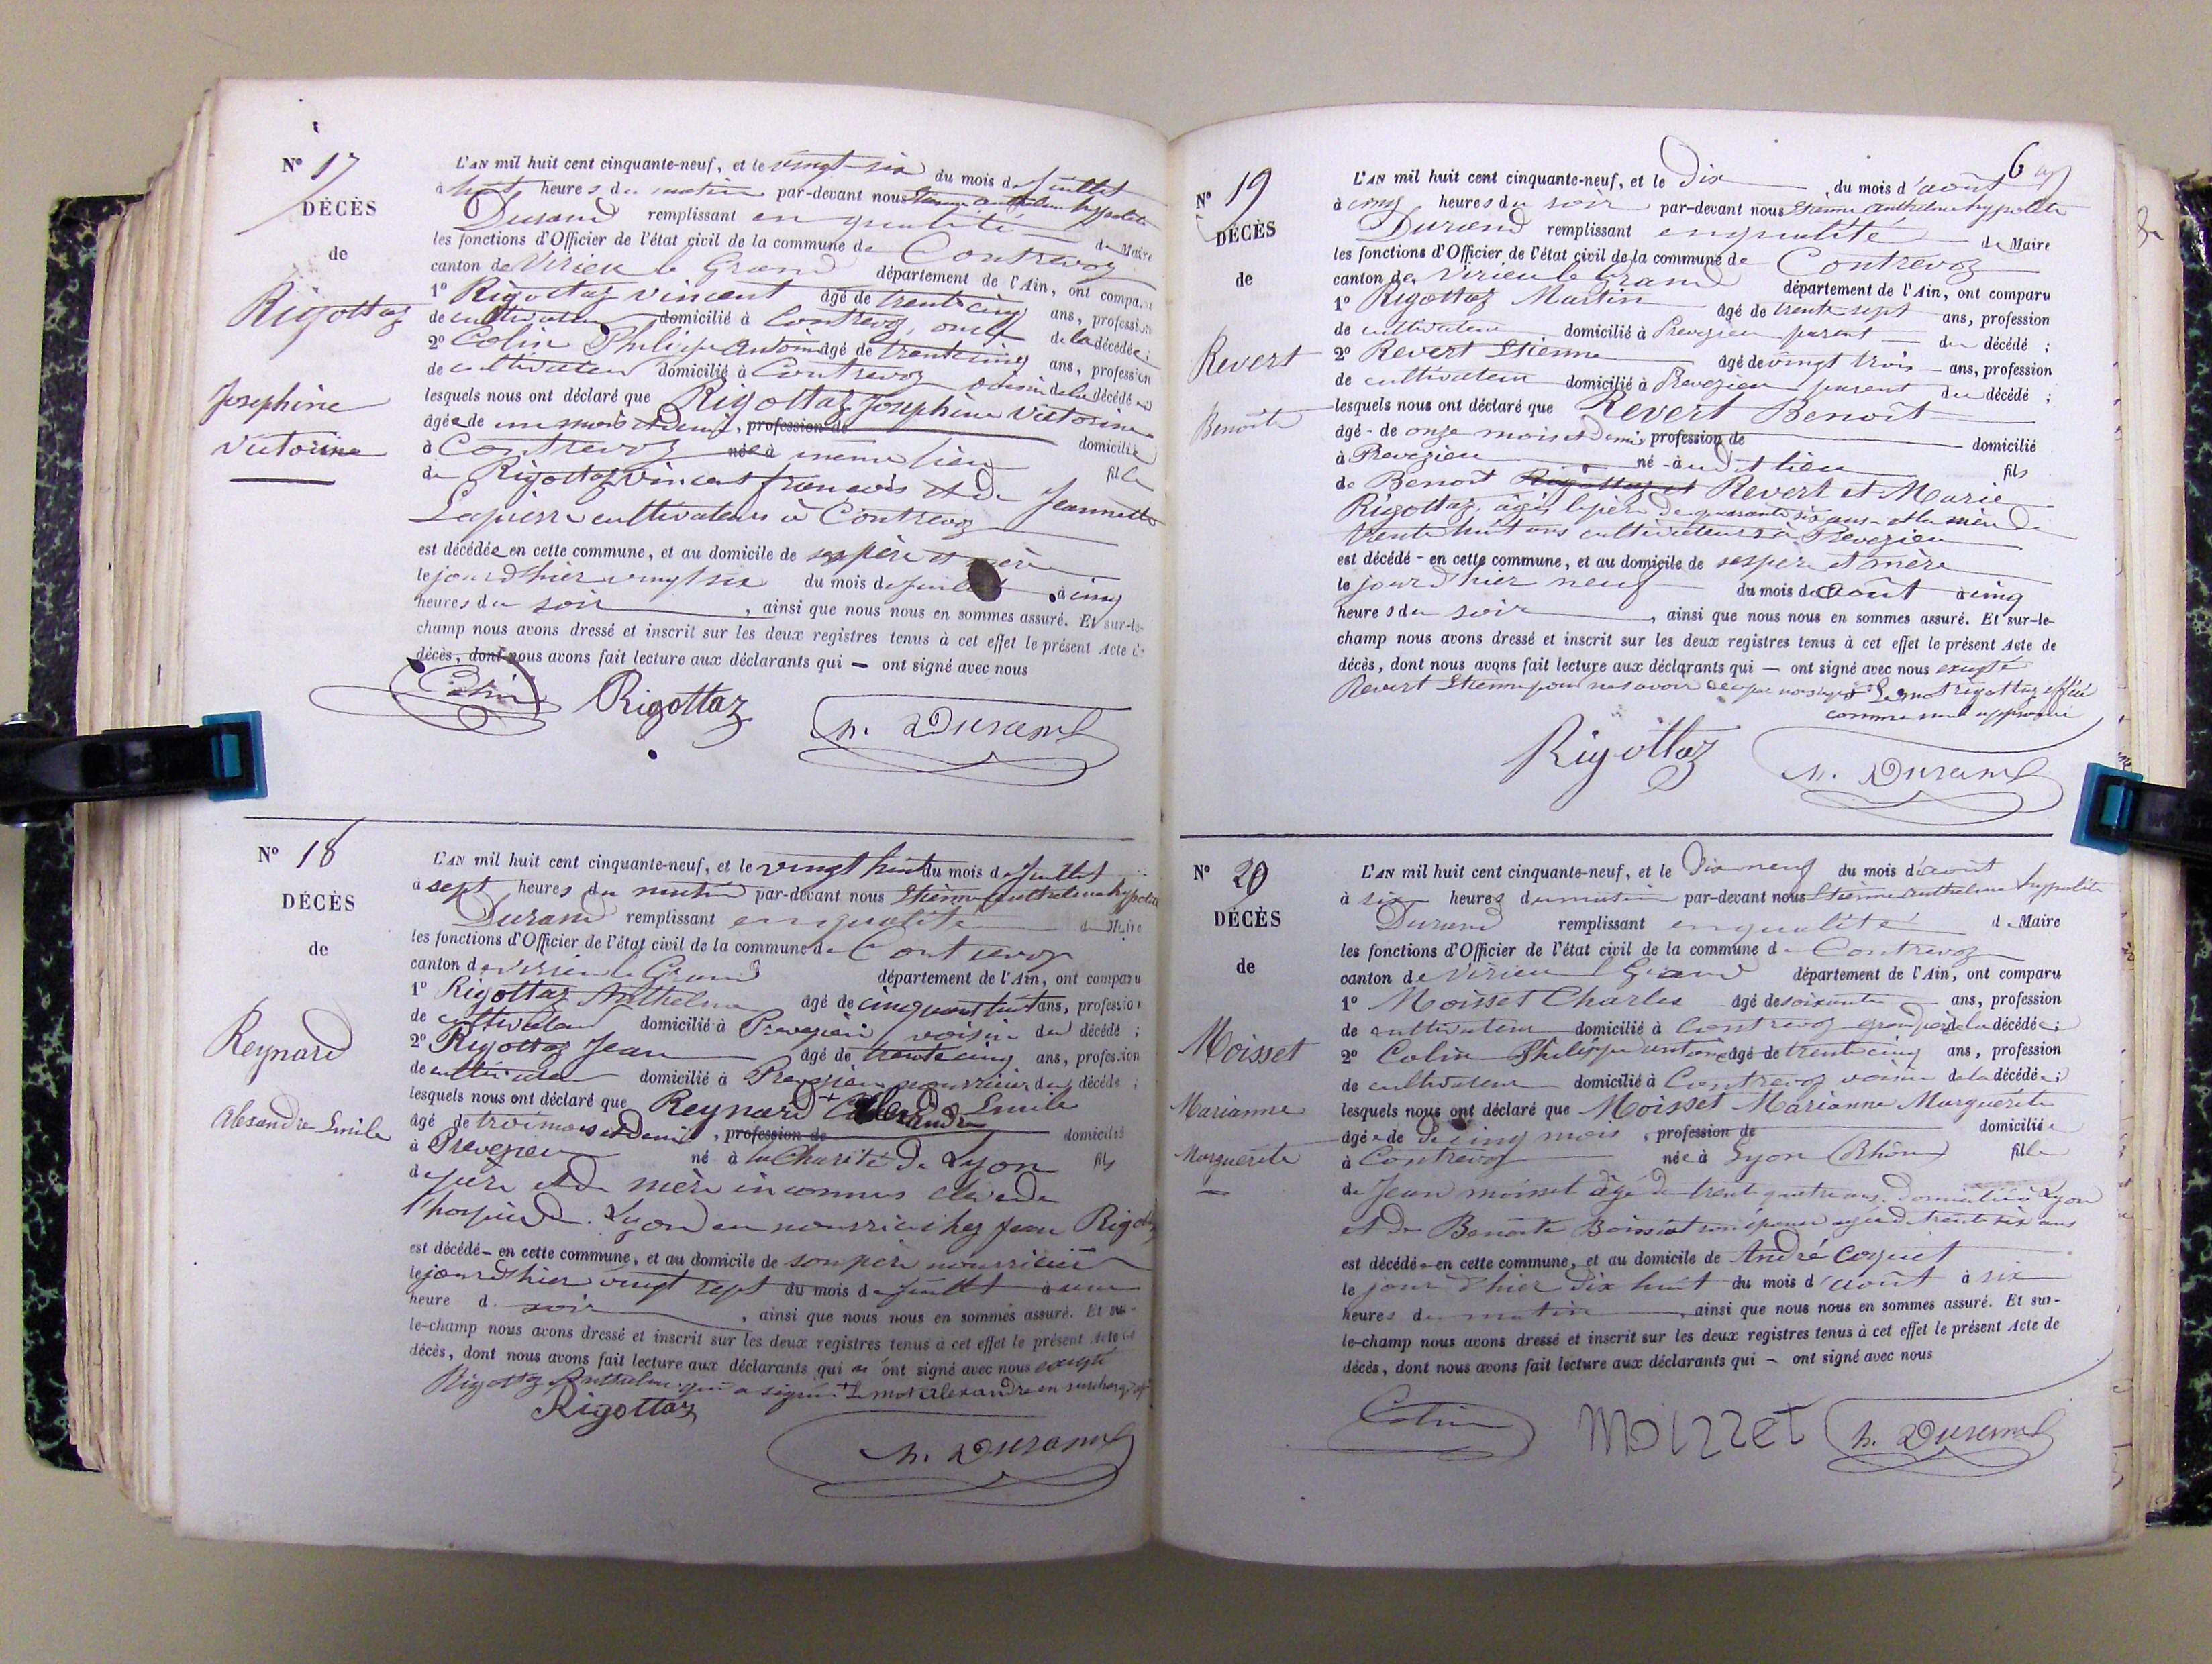 Nº 17
DÉCÈS
de
Rigottaz
Josephine
Victorine
L'AN mil huit cent cinquante-neuf, et le vingt-six du mois de Juillet
à heures du matin par-devant nous Etienne anthelme hyppolite
Durand remplissant en qualité de Maire
les fonctions d'Officier de l'état civil de la commune de Contrevoz
canton de Virieu le Grand département de l'Ain, ont comparu
1º Rigottaz Vincent âgé de trente cinq ans, profession
de cultivateur domicilié à Contrevoz, oncle de la décédée;
2º Colin Philippe Antoine âgé de trente cinq ans, profession
de cultivateur domicilié à Contrevoz voisin de la décédée
lesquels nous ont déclaré que Rigottaz Josephine Victorine
âgée de un mois et demi, profession de domiciliée
à Contrevoz née à même lieu fille
de Rigottaz Vincent francois et de Jeannette
Lapierre cultivateurs à Contrevoz
est décédée en cette commune, et au domicile de ses père et mère
le jour d'hier vingt du mois de Juillet à cinq
heures du soir, ainsi que nous nous en sommes assuré. Et sur-le-
champ nous avons dressé et inscrit sur les deux registres tenus à cet effet le présent Acte de
décès, dont nous avons fait lecture aux déclarants qui — ont signé avec nous
Colin Rigottaz h. Durand
Nº 18
DÉCÈS
de
Reynard
Alexandre Emile
L'AN mil huit cent cinquante-neuf, et le vingt huit du mois de Juillet
à sept heures du matin par-devant nous Etienne Anthelme hyppolite
Durand remplissant en qualité de Maire
les fonctions d'Officier de l'état civil de la commune de Contrevoz
canton de Virieu le Grand département de l'Ain, ont comparu
1º Rigottaz Anthelme âgé de cinquante huit ans, profession
de cultivateur domicilié à Prevezieu, voisin du décédé;
2º Rigottaz Jean âgé de trente cinq ans, profession
de cultivateur domicilié à Prevezieu nourricier du décédé;
lesquels nous ont déclaré que Reynard + Alexandre Emile
âgé de trois mois et demi, profession de domicilié
à Prevezieu né à la Charité de Lyon fils
de père et de mère inconnus eleve de
l'hospice de Lyon en nourrice chez Jean Rigottaz
est décédé - en cette commune, et au domicile de son père nourricier
le jour d'hier vingt sept du mois de Juillet à une
heure d. soir, ainsi que nous nous en sommes assuré. Et sur-
le-champ nous avons dressé et inscrit sur les deux registres tenus à cet effet le présent Acte de
décès, dont nous avons fait lecture aux déclarants qui n'ont signé avec nous excepté
Rigottaz Anthelme qui a signé. + Le mot Alexandre en surcharge
Rigottaz h. Durand
6
Nº 19
DÉCÈS
de
Revert
Benoît
L'AN mil huit cent cinquante-neuf, et le Dix du mois d'août
à cinq heures du soir par-devant nous Etienne Anthelme hyppolite
Durand remplissant en qualité de Maire
les fonctions d'Officier de l'état civil de la commune de Contrevoz
canton de Virieu le Grand département de l'Ain, ont comparu
1º Rigottaz Martin âgé de trente sept ans, profession
de cultivateur domicilié à Prevezieu parent du décédé;
2º Revert Etienne âgé de vingt trois ans, profession
de cultivateur domicilié à Prevezieu parent du décédé;
lesquels nous ont déclaré que Revert Benoît
âgé - de onze mois et demi, profession de domicilié
à Prevezieu né - audit lieu fils
de Benoit Rigottaz et Revert et Marie
Rigottaz, âgés le père de quarante six ans et la mère de
trente huit ans cultivateurs à Prevezieu
est décédé - en cette commune, et au domicile de ses père et mère
le jour d'hier neuf du mois d'Août à cinq
heures du soir, ainsi que nous nous en sommes assuré. Et sur-le-
champ nous avons dressé et inscrit sur les deux registres tenus à cet effet le présent Acte de
décès, dont nous avons fait lecture aux déclarants qui — ont signé avec nous excepté
Revert Etienne pour ne savoir Le mot rigottaz effacé
comme nul approuvé
Rigottaz h. Durand
Nº 20
DÉCÈS
de
Moisset
Marianne
Marguerite
L'AN mil huit cent cinquante-neuf, et le Dix neuf du mois d'août
à six heures du matin par-devant nous Etienne Anthelme hyppolite
Durand remplissant en qualité d Maire
les fonctions d'Officier de l'état civil de la commune d Contrevoz
canton de Virieu l Grand département de l'Ain, ont comparu
1º Moisset Charles âgé de soixante ans, profession
de cultivateur domicilié à Contrevoz grand père de la décédée;
2º Colin Philippe antoine âgé de trente cinq ans, profession
de cultivateur domicilié à Contrevoz voisin de la décédée;
lesquels nous ont déclaré que Moisset Marianne Marguerite
âgée de De cinq mois, profession de domiciliée
à Contrevoz née à Lyon (Rhône) fille
de Jean moisset âgé de trente quatre ans, domicilié à Lyon
et de Benoite Boissat son épouse agée de trente six ans
est décédée en cette commune, et au domicile de André Coquet
le jour d'hier dix huit du mois d'août à six
heures du matin, ainsi que nous nous en sommes assuré. Et sur-
le-champ nous avons dressé et inscrit sur les deux registres tenus à cet effet le présent Acte de
décès, dont nous avons fait lecture aux déclarants qui — ont signé avec nous
Colin Moizzet h. Durand